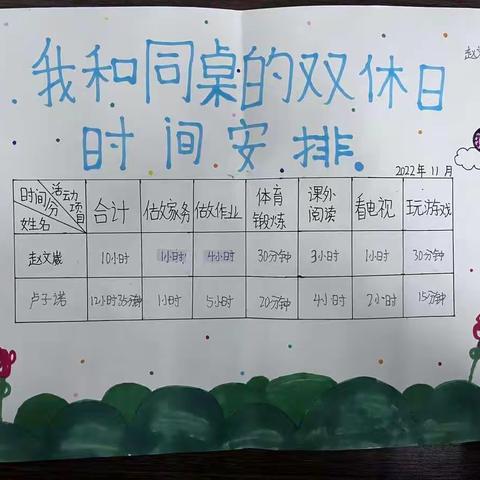 我和同桌的双休日
时间安排.
赵文
2022年11月
时间/份 活动项目 姓名 合计 做家务 做作业 体育锻炼 课外阅读 看电视 玩游戏
赵文崴 10小时 1小时 4小时 30分钟 3小时 1小时 30分钟
卢子诺 12小时35分钟 1小时 5小时 20分钟 4小时 2小时 15分钟